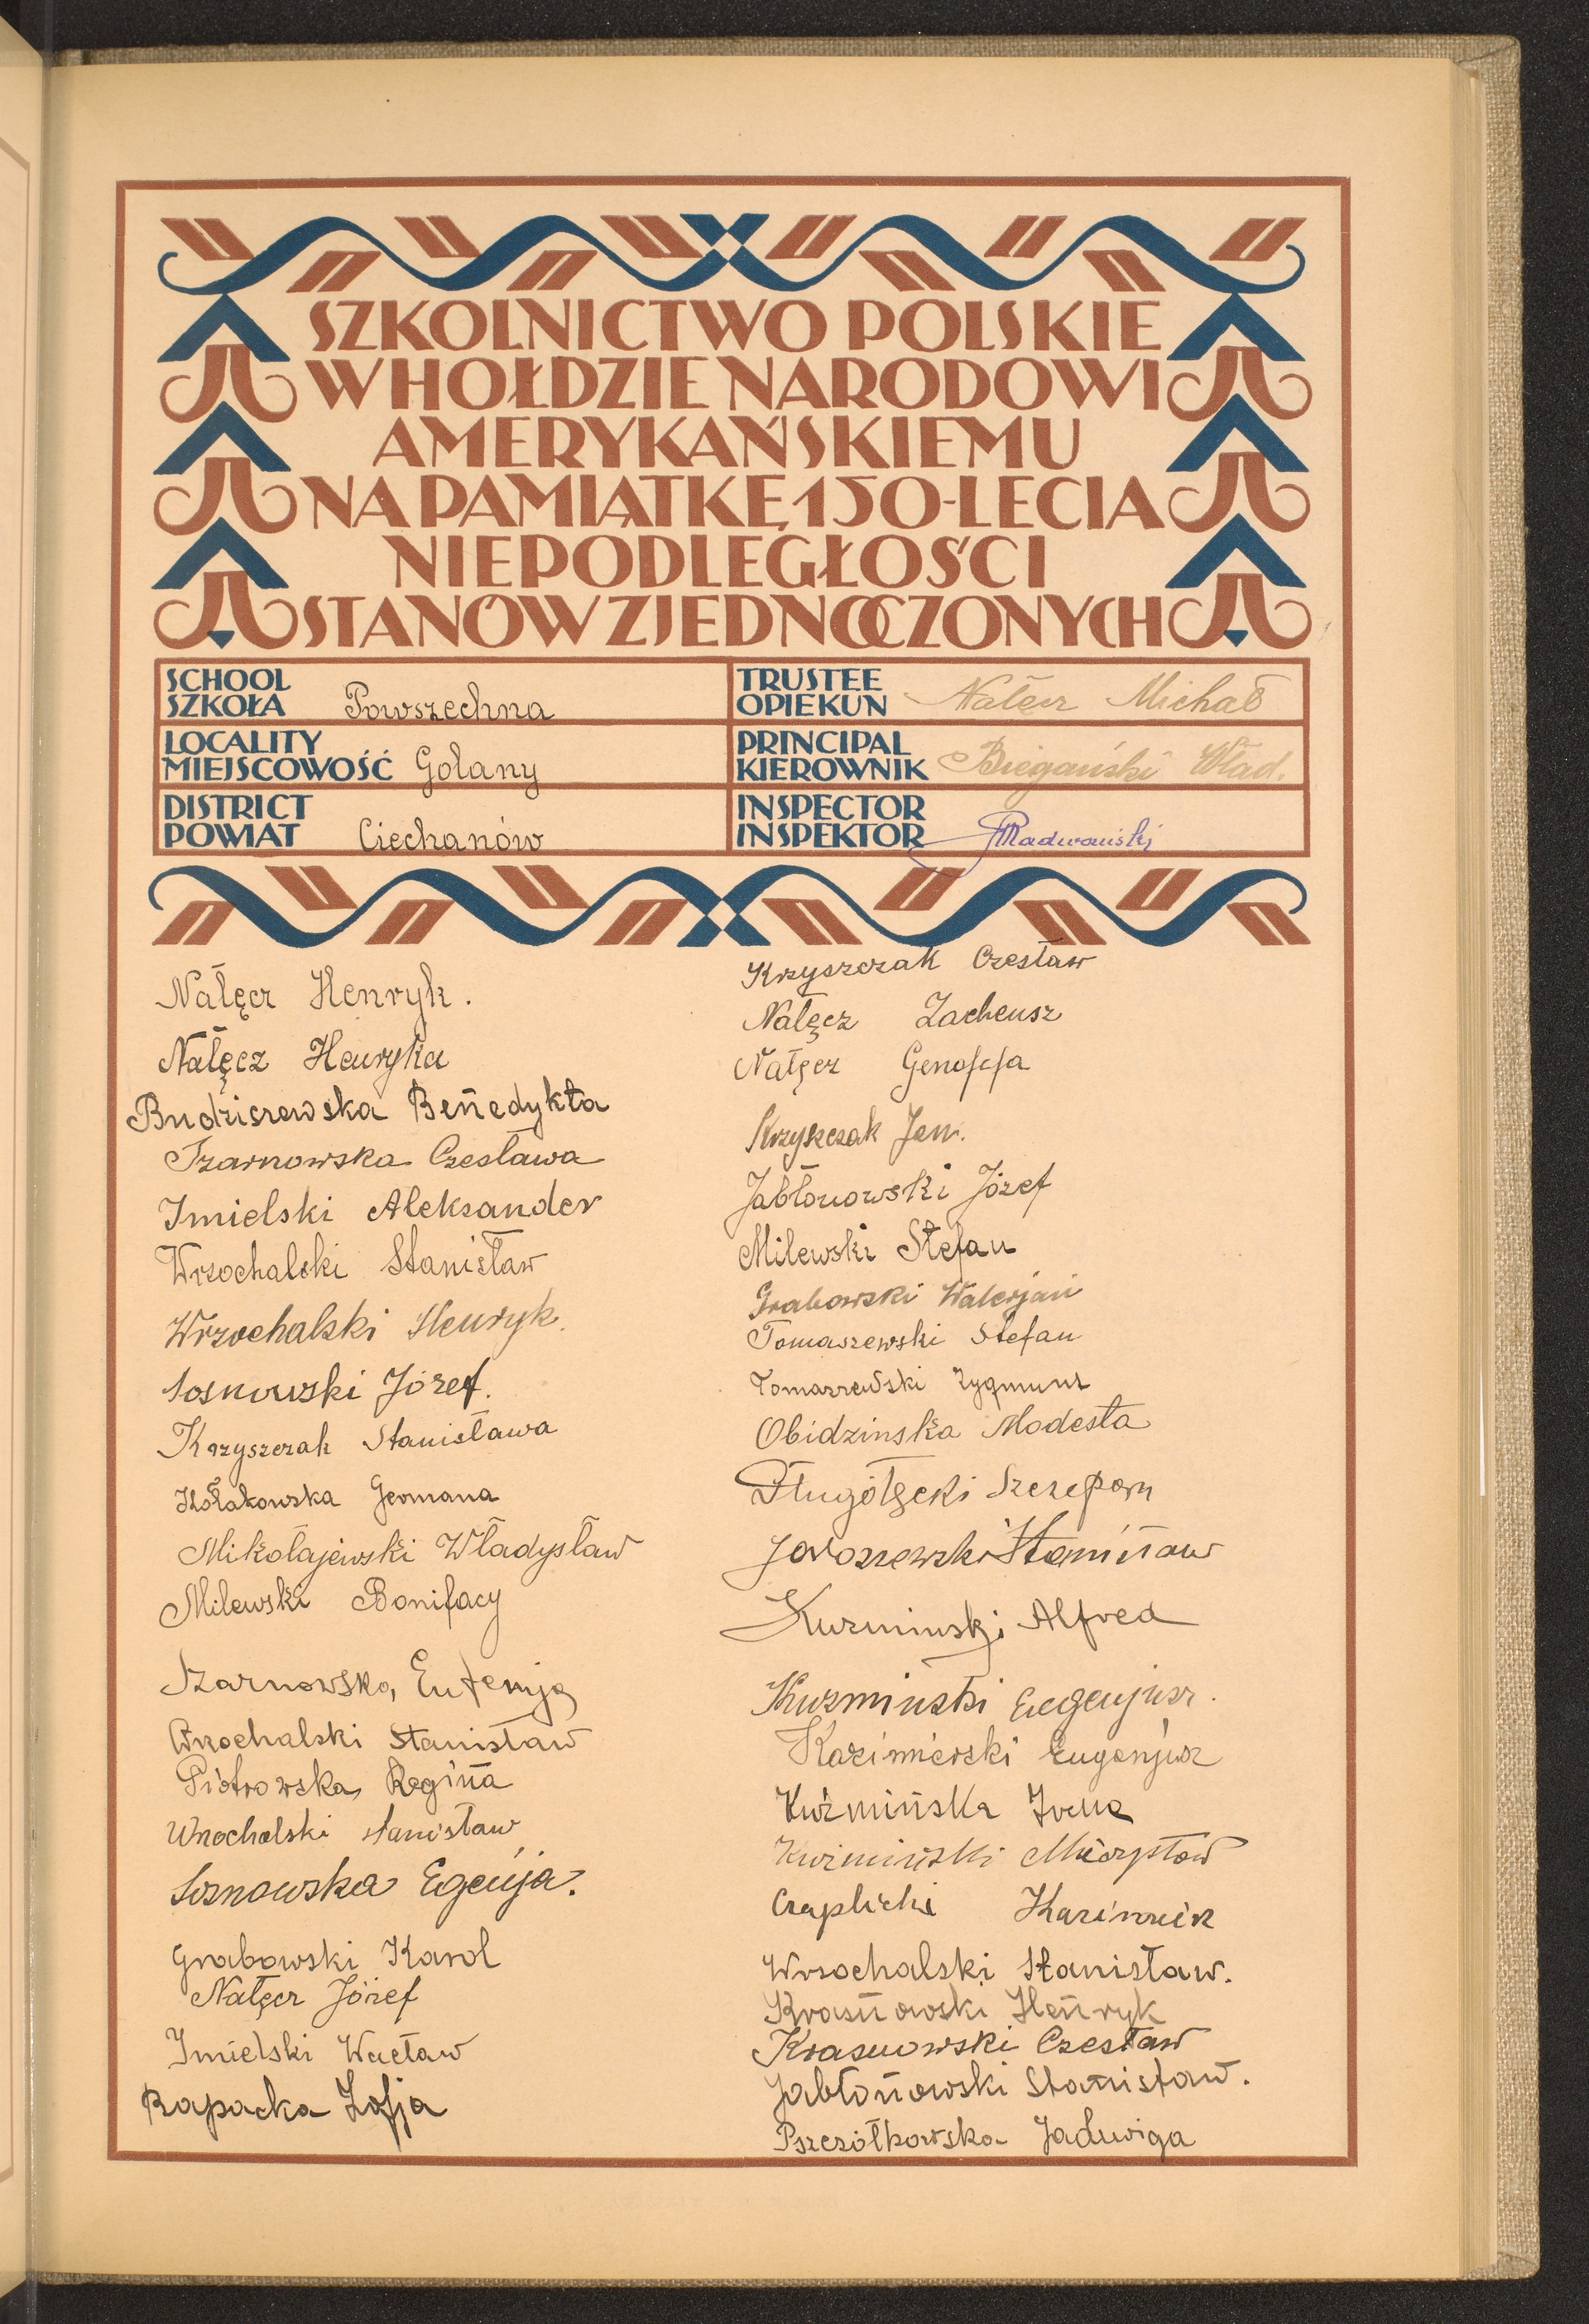 SZKOLNICTWO POLSKIE
W HOŁDZIE NARODOWI
AMERYKAŃSKIEMU
NA PAMIĄTKĘ 150-LECIA
NIEPODLEGŁOŚCI
STANÓW ZJEDNOCZONYCH
SCHOOL
SZKOŁA Powszechna
TRUSTEE
OPIEKUN Nałęcz Michał
LOCALITY
MIEJSCOWOŚĆ Gołany
PRINCIPAL
KIEROWNIK Biegański Wład.
DISTRICT
POWIAT Ciechanów
INSPECTOR
INSPEKTOR Radwański
Nałęcz Henryk.
Nałęcz Henryka
Budziszewska Benedykta
Szarnowska Czesława
Imielski Aleksander
Wrzochalski Stanisław
Wrzochalski Henryk.
Sosnowski Józef.
Krzyszczak Stanisława
Kołakowska Germana
Mikołajewski Władysław
Milewski Bonifacy
Szarnowska Eufemja
Wrzochalski Stanisław
Piotrowska Regina
Wrzochalski Stanisław
Sosnowska Egenja.
Grabowski Karol
Nałęcz Józef
Imielski Wacław
Rapacka Zofja
Krzyszczak Czesław
Nałęcz Zacheusz
Nałęcz Genofefa
Krzyszczak Jan.
Jabłonowski Józef
Milewski Stefan
Grabowski Walerjan
Tomaszewski Stefan
Tomaszewski Zygmunt
Obidzinska Modesta
Długołęcki Szczepan
Jaroszewski Stanisław
Kuzminski Alfred
Kuzminski Eugenjusz.
Kazimierski Eugenjusz
Kuźmińska Irena
Kuźmiński Mieczysław
Czaplicki Kazimierz
Wrzochalski Stanisław.
Krasnowski Henryk
Krasnowski Czesław
Jabłonowski Stanisław.
Pszczółkowska Jadwiga